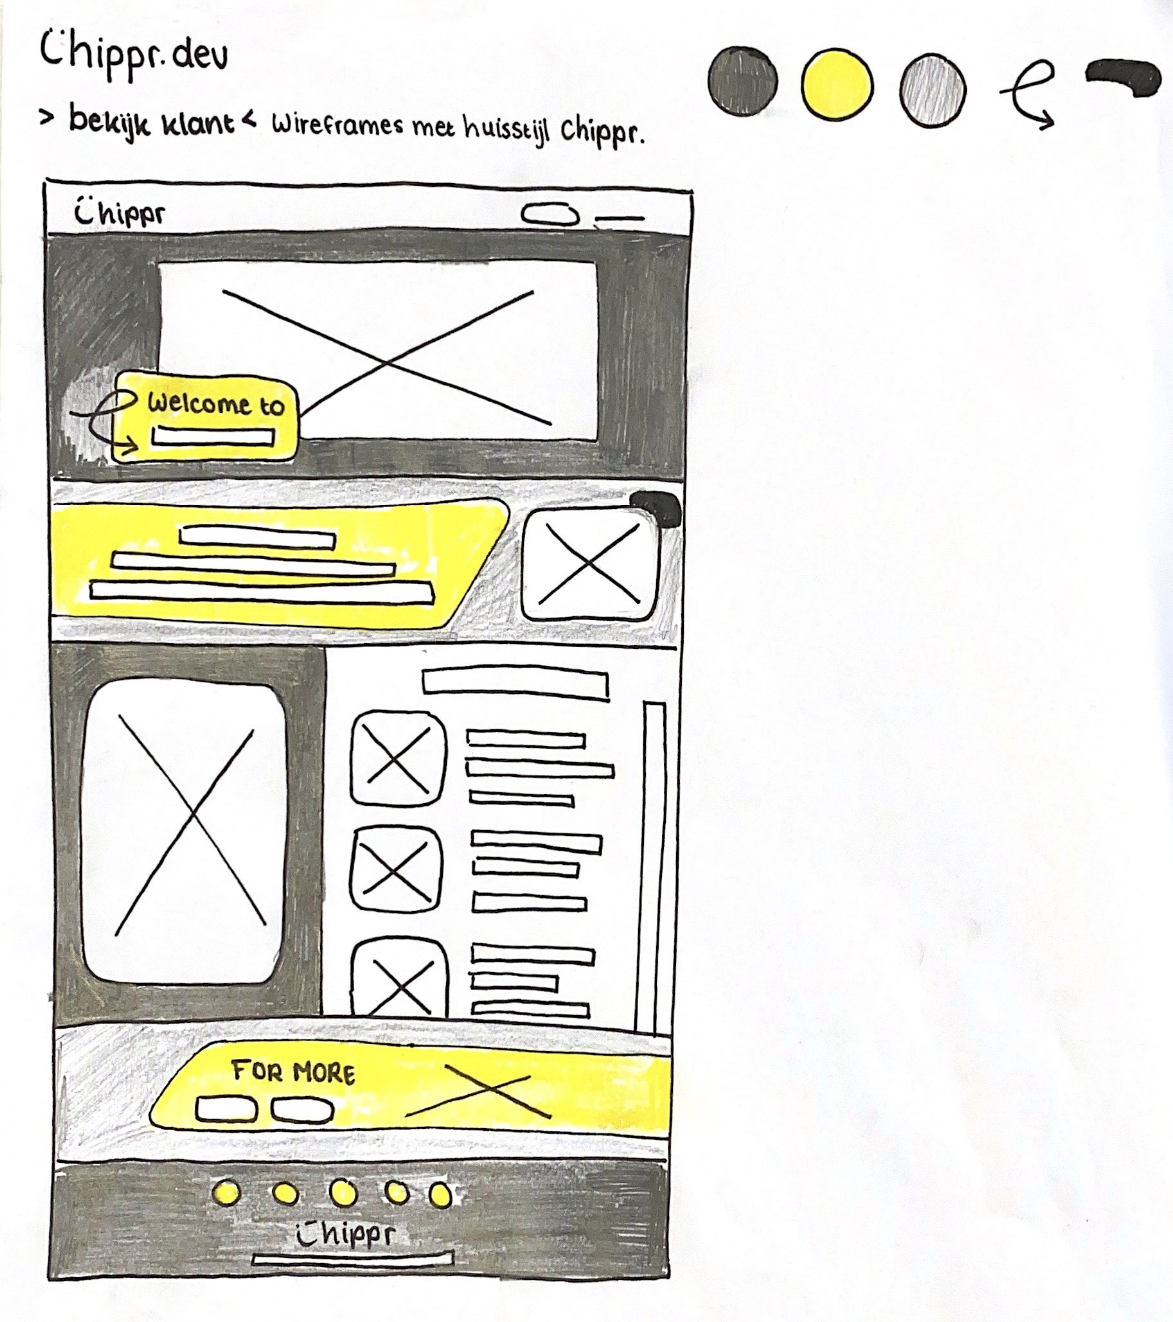 Chippr.dev
> bekijk klant < Wireframes met huisstijl Chippr.
Chippr
Welcome to
FOR MORE
Chippr